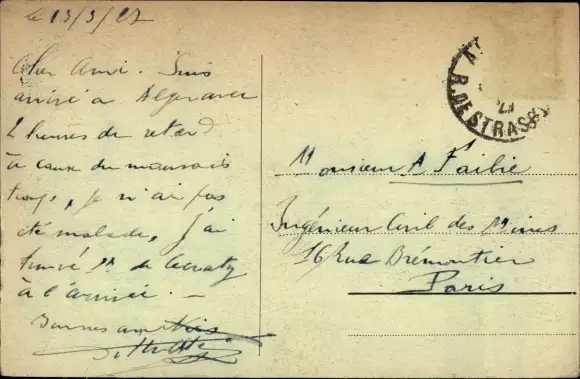 le 13/3/27
Cher Ami. Suis
arrivé a Alger avec
2 heures de retard
à cause du mauvais
temps, je n'ai pas
été malade, j'ai
trouvé Mr de
à l'arrivée. —
Bonnes amitiés
Monsieur A Failie
Ingénieur Civil des Mines
16 Rue Brémontier
Paris
R. DE STRASB